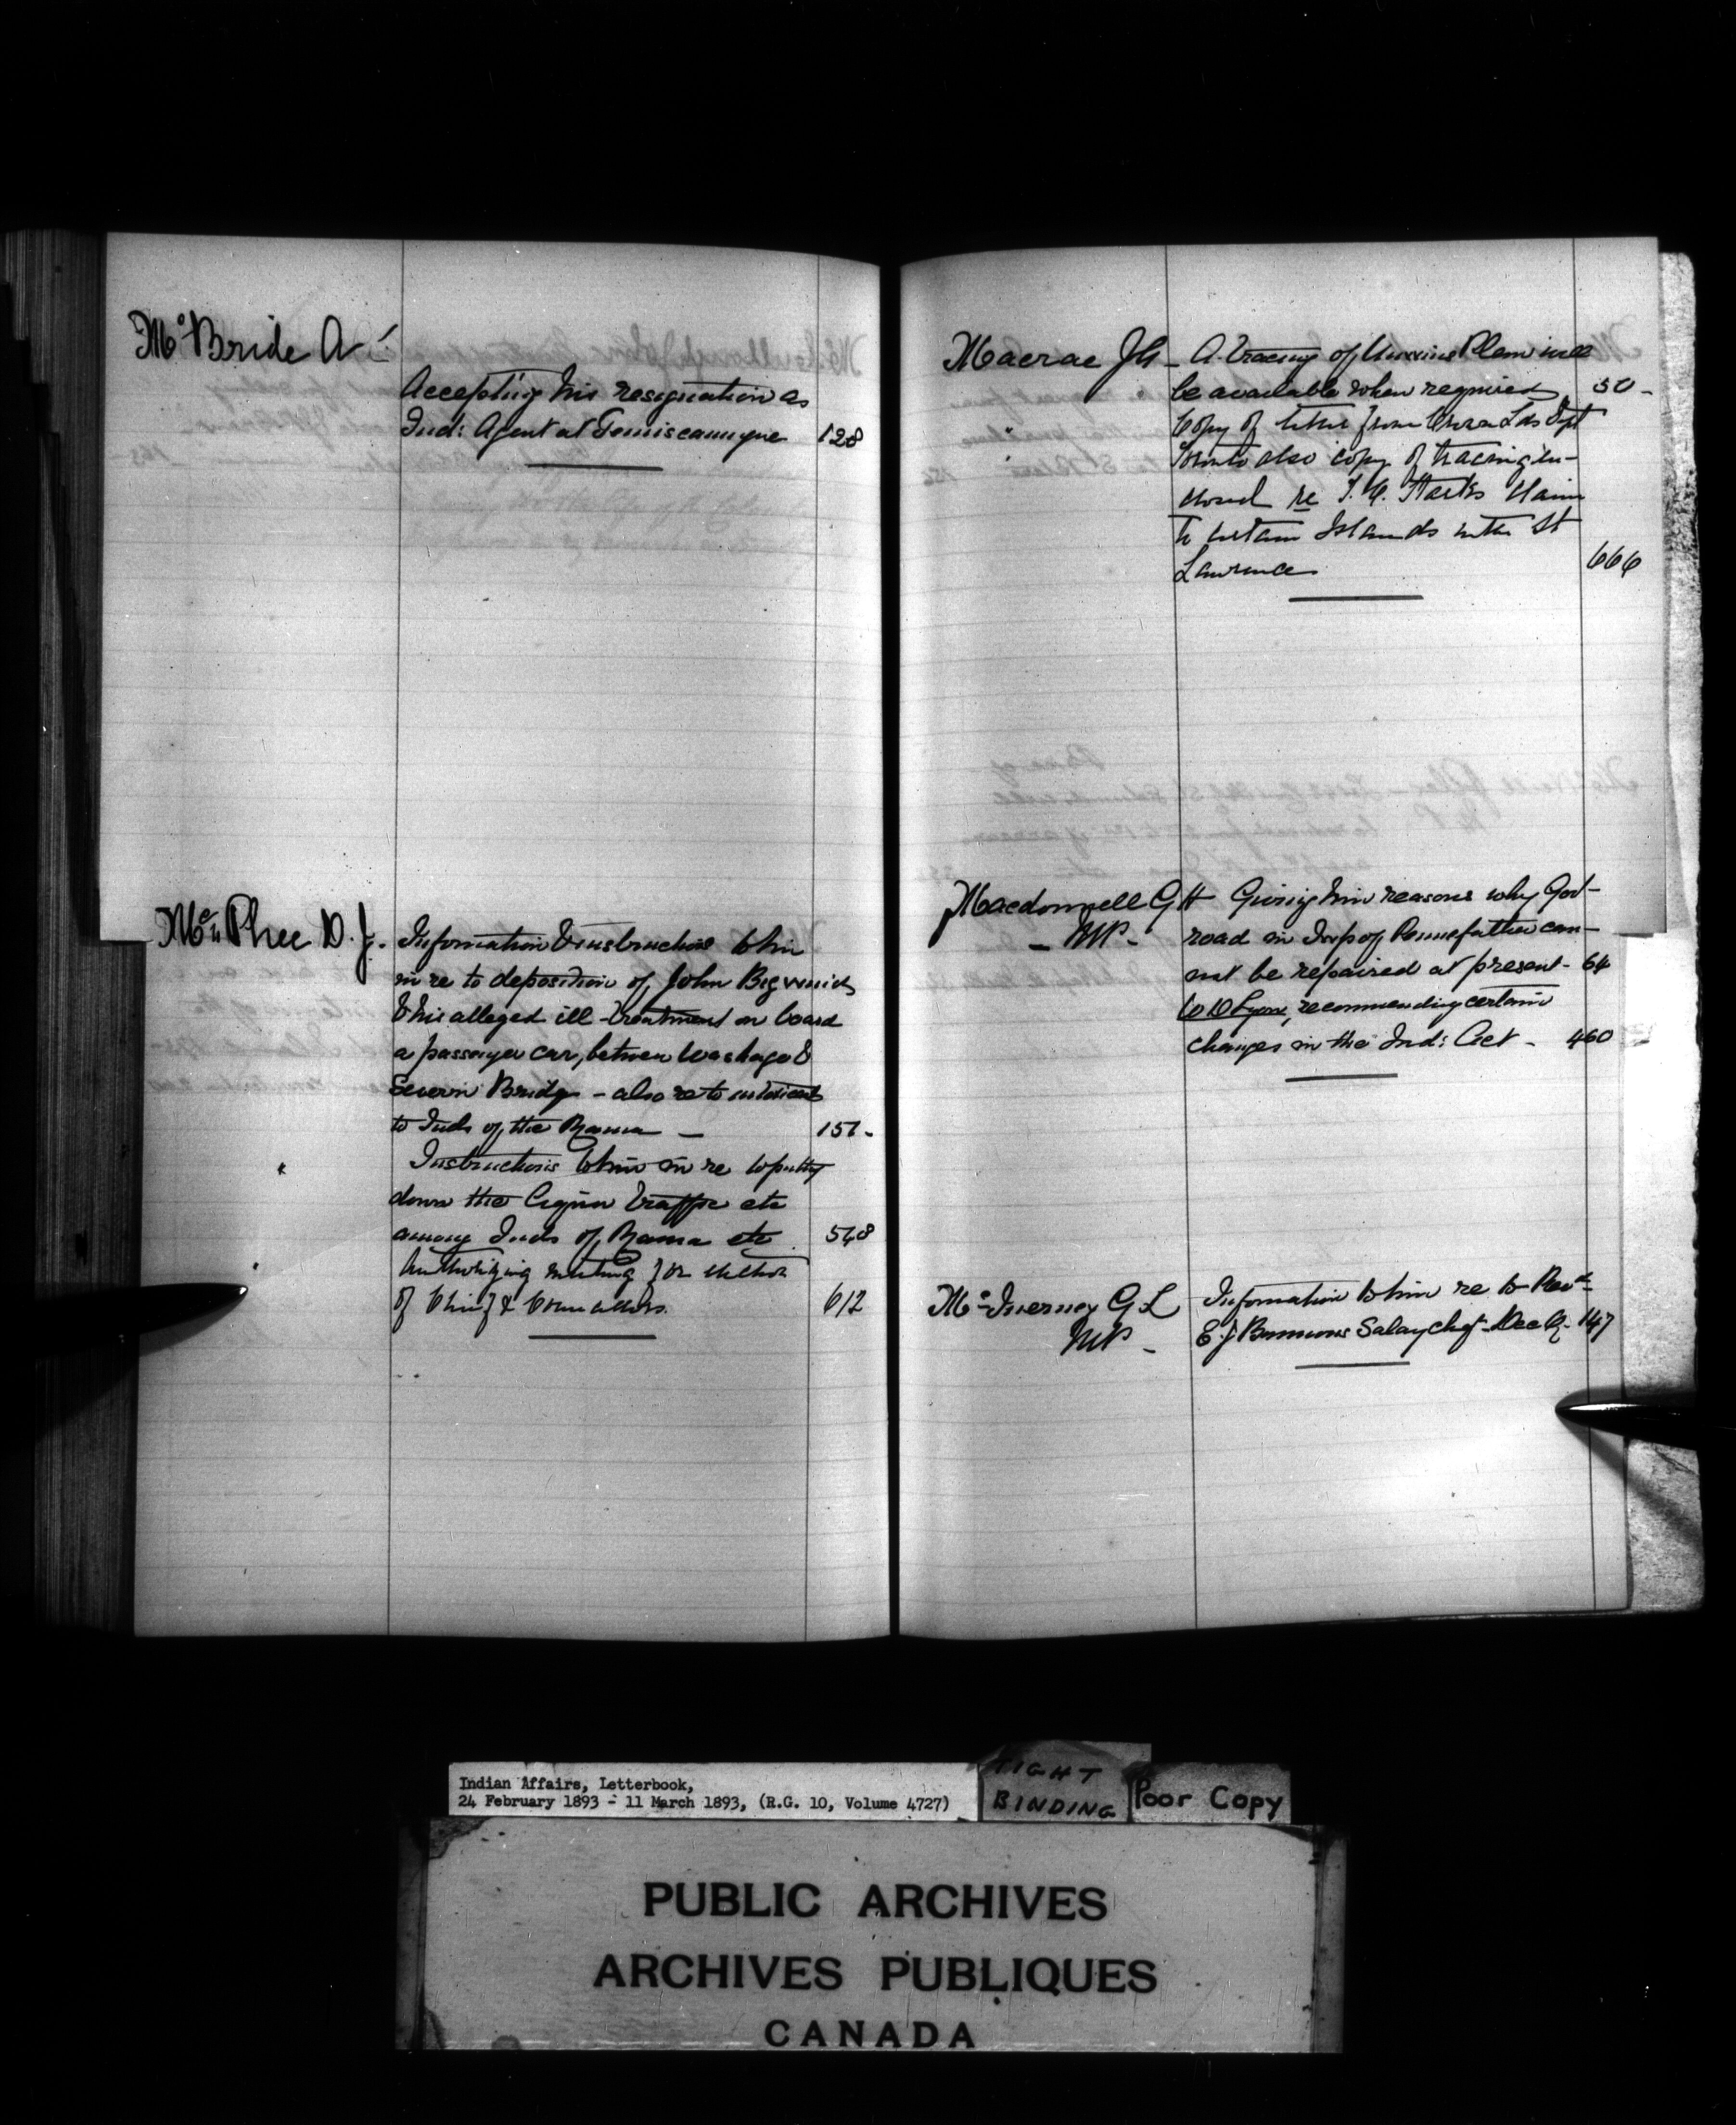 McBride A
Accepting his resignation as
Ind: Agent at Temiscamingue 128
McPhee D. J. Information & instructions to him
in re to deposition of John Bigwind
& his alleged ill-treatment on board
a passenger car, between Washago &
Severn Bridge - also re to intoxicants
to Inds of the Rama — 151-
" Instructions to him in re to putting
down the Liquor traffic etc
among Inds of Rama etc 568
" Authorizing meeting for election
of Chief & Councillors. 612
Macrae J G - A tracing of Unwins Plan will
be available when required 50-
" Copy of letter from Crown Lds Dept
Toronto also copy of tracing en-
closed re T. C. claim
to certain Islands in the St
Lawrence 666
Macdonnell G H Giving him reasons why Gov-
- MP - road in Twp of Pennefather can-
not be repaired at present - 64
to D Lyon, recommending certain
changes in the Ind: Act - 460
McInerney G L Information to him re to Revd
MP - E. J. Bannons Salary chq - Dec Q. 147
Indian Affairs, Letterbook,
24 February 1893 - 11 March 1893, (R.G. 10, Volume 4727)
TIGHT
BINDING
Poor Copy
PUBLIC ARCHIVES
ARCHIVES PUBLIQUES
CANADA